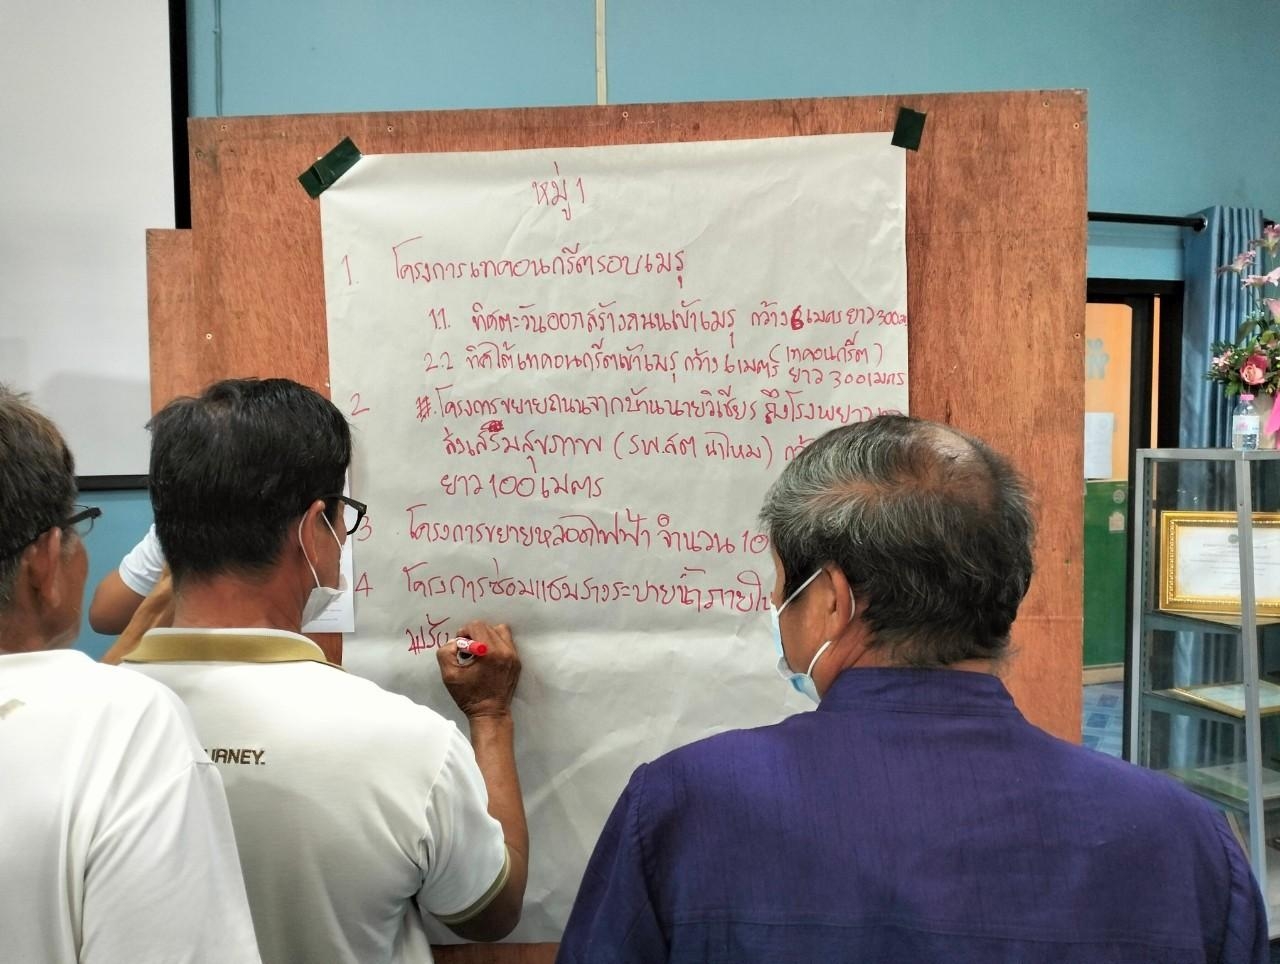 หมู่ 1
1. โครงการเทคอนกรีตรอบเมรุ
1.1. ทิศตะวันออกสร้างถนนเข้าเมรุ กว้าง 6 เมตร ยาว 300
2.2 ทิศใต้เทคอนกรีตเข้าเมรุ กว้าง 6 เมตร (เทคอนกรีต)
ยาว 300 เมตร
2 #. โครงการขยายถนนจากบ้านนายวิเชียร ถึงโรงพยาบาล
ส่งเสริมสุขภาพ (รพ.สต นาไหม)
ยาว 100 เมตร
3 โครงการขยายหลอดไฟฟ้า จำนวน 10
4 โครงการซ่อมแซมรางระบายน้ำภายใน
URNEY.